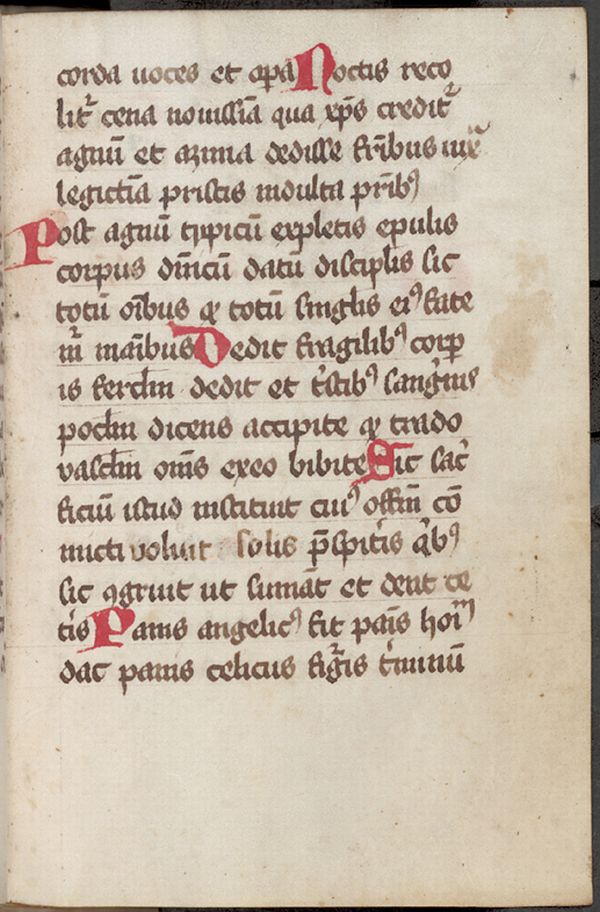 corda uoces et oꝑa Noctis reco
litʼ cena nouissīa qua xp̄s creditʼ
agnū et azima dedisse fr̄ibus iux̄
legictīa priscis indulta pr̄ibꝰ
Post agnū tipicū expletis epulis
corpus dn̄icū datū disciplis sic
totū oībus ꝙ totū singlis eiꝰ fate
mʼ manībus Dedit fragilibꝰ corp
is ferclm dedit et tʼstibꝰ sangʼnis
poclm dicens accipite ꝙ trado
vasclm om̄s exeo bibite Sic sacʼ
ficiū istud instituit cuiꝰ offm̄ cō
micti voluit solis p̄spitʼis qʼbꝰ
sic ꝯgruit ut sumāt et dent ce
tʼis Panis angelicꝰ fit panīs hoīʼ
dat panis celicus figʼis tʼminū